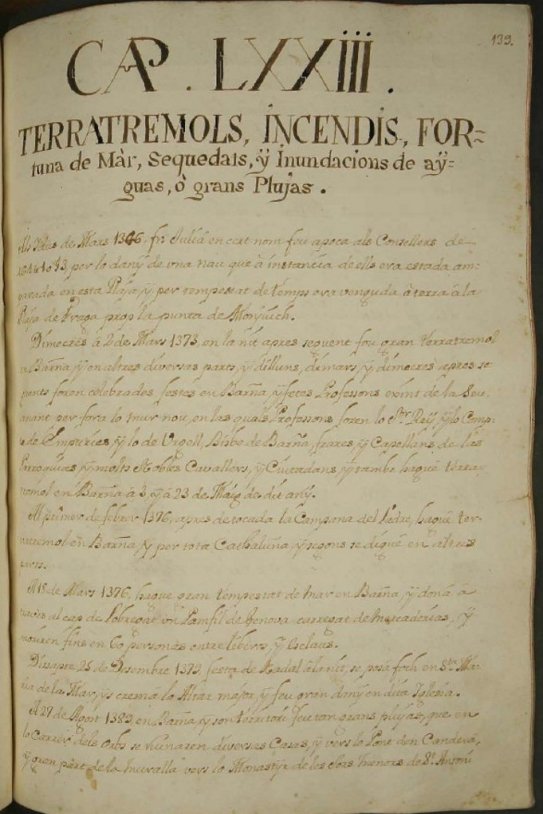 139.
CAP. LXXIII.
TERRATREMOLS, INCENDIS, FOR=
tuna de Màr, Sequedats, ÿ Inundacions de aÿ=
guas, ò grans Plujas.
Als Idas de Mars 13 6. fr. Juliá en cert nom feu apoca als Consellers de
 per lo dany de una nau que à instancia de ells era estada am
parada en esta Plaja, ÿ per tempestat de temps era venguda à terra à la
Plaja de prop la punta de Monjuich.
Dimecres à 2 de Mars 1373, en la nit apres seguent fou gran terratremol
en Barña ÿ en altres diversas parts, ÿ dilluns, dimars, ÿ dimecres apres se
guents foren celebrades festes en Barña, ÿ fetes Professons exint de la Seu,
anant per fora lo mur nou, en las quals Professons foren lo Sor. Reÿ, ÿ lo Comp
te de Empuries, ÿ lo de Urgell, Bisbe de Barña, frares, ÿ Capellans de las
Parroquias, ÿ molts Nobles Cavallers, ÿ Ciutadans, ÿ tambe hague terra
tremol en Barña à 3 ÿ à 23 de Maig de dit anÿ.
Al primer de febrer 1376, apres de tocada la Campana del ladre, hague ter
ratremol en Barña, ÿ per tota Cathaluña, ÿ segons se digué en altres
parts.
A 18 de Mars 1376, hague gran tempestat de mar en Barña, ÿ doná à
través al cap de Llobregat un Panfil de Genova carregat de Mercaderias, ÿ
moriren fins en 60 personas entre llibres, ÿ Esclaus.
Dissapte 25 de Desembre 1379, festa de Nadal à la nit, se posá foch en Sta. Ma
ria de la Mar, ÿs cremà lo Altar major, ÿ feu gran dany en dita Iglesia.
A 27 de Agost 1389, en Barña ÿ son Territori feu tan grans plujas, que en
lo Carrer dels Orbs se diversas Casas, ÿ vers lo Pont den Candera,
ÿ gran part de la muralla vers lo Monastÿr de las Sors menors de St. Antoni